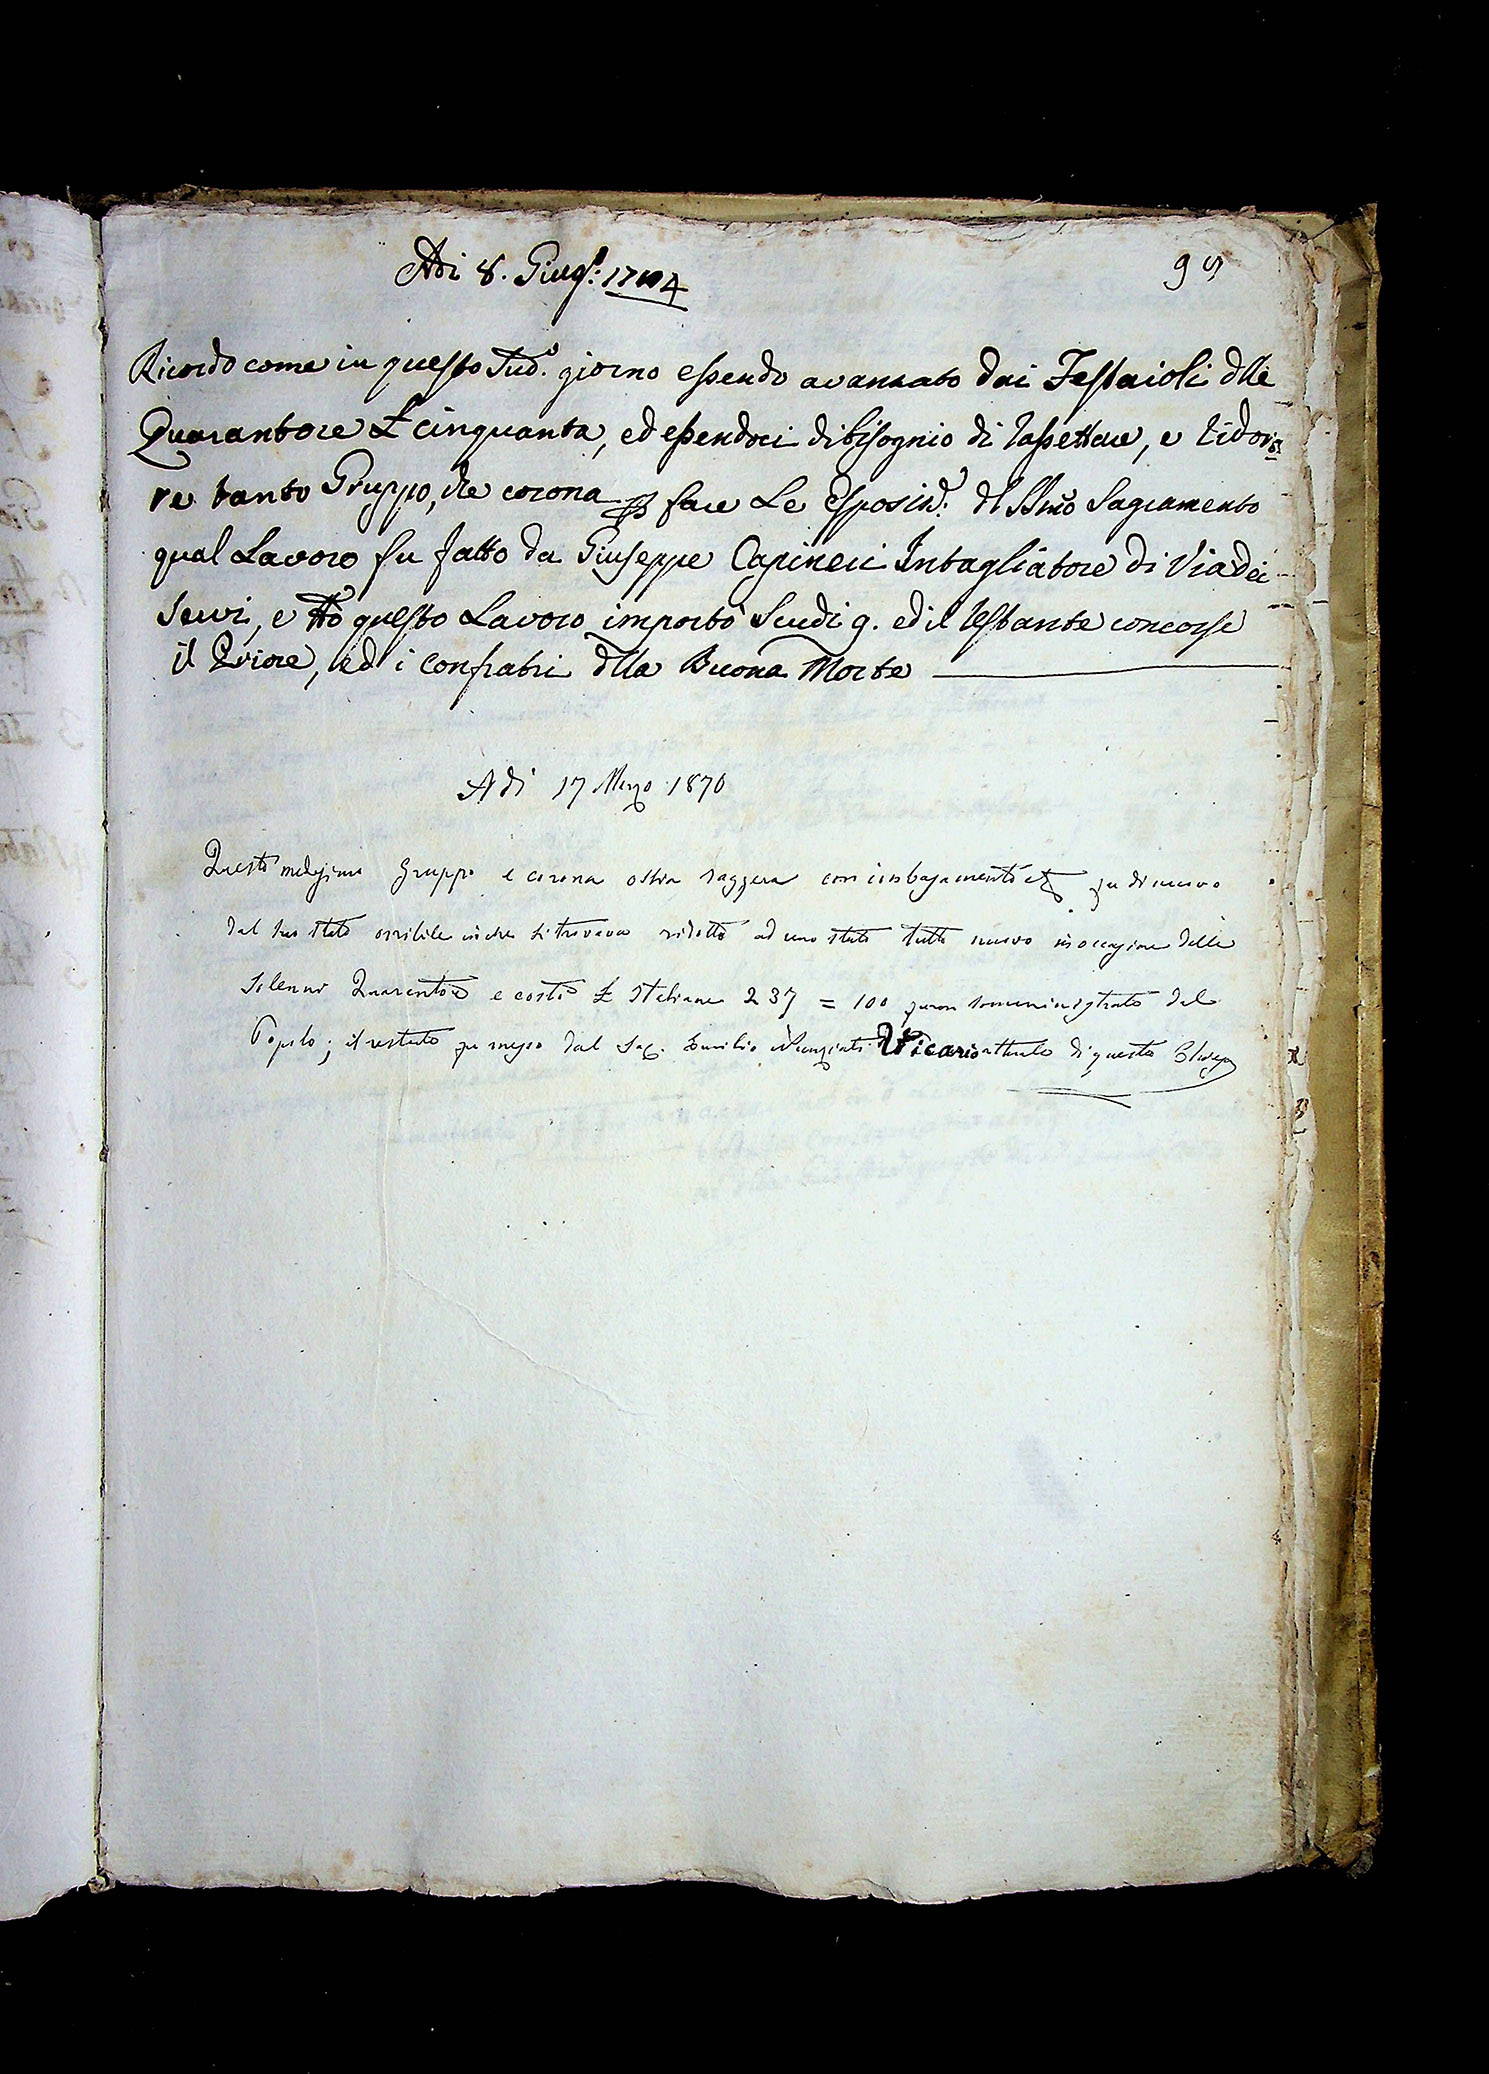 Adi 8. Giug.o 1794
95
Ricordo come in questo Sud.o giorno essendo avanzato dai Festaioli dlle
Quarantore £ cinquanta, ed essendoci di bisognio di rassettare, e ridora
re tanto Gruppo, che corona p fare Le Esposiz.i dl SSmo Sagramento
qual Lavoro fu fatto da Giuseppe Intagliatore di Via dei
Servi, e tto questo Lavoro importò Scudi 9. ed il restante concorse
il Priore, ed i Confratri dlla Buona Morte
Adi 17 Marzo 1876
Questo medesimo gruppo e corona ossia raggera con fu di nuovo
dal suo stato orribile in che si trovava ridotto ad uno stato tutto nuovo in occasione delle
Solenni Quarantore e costò £ Italiane 237 = 100 furon somministrate dal
Popolo; il restante fu messo dal Sac. Emilio Nunziati Vicario attuale di questa Chiesa